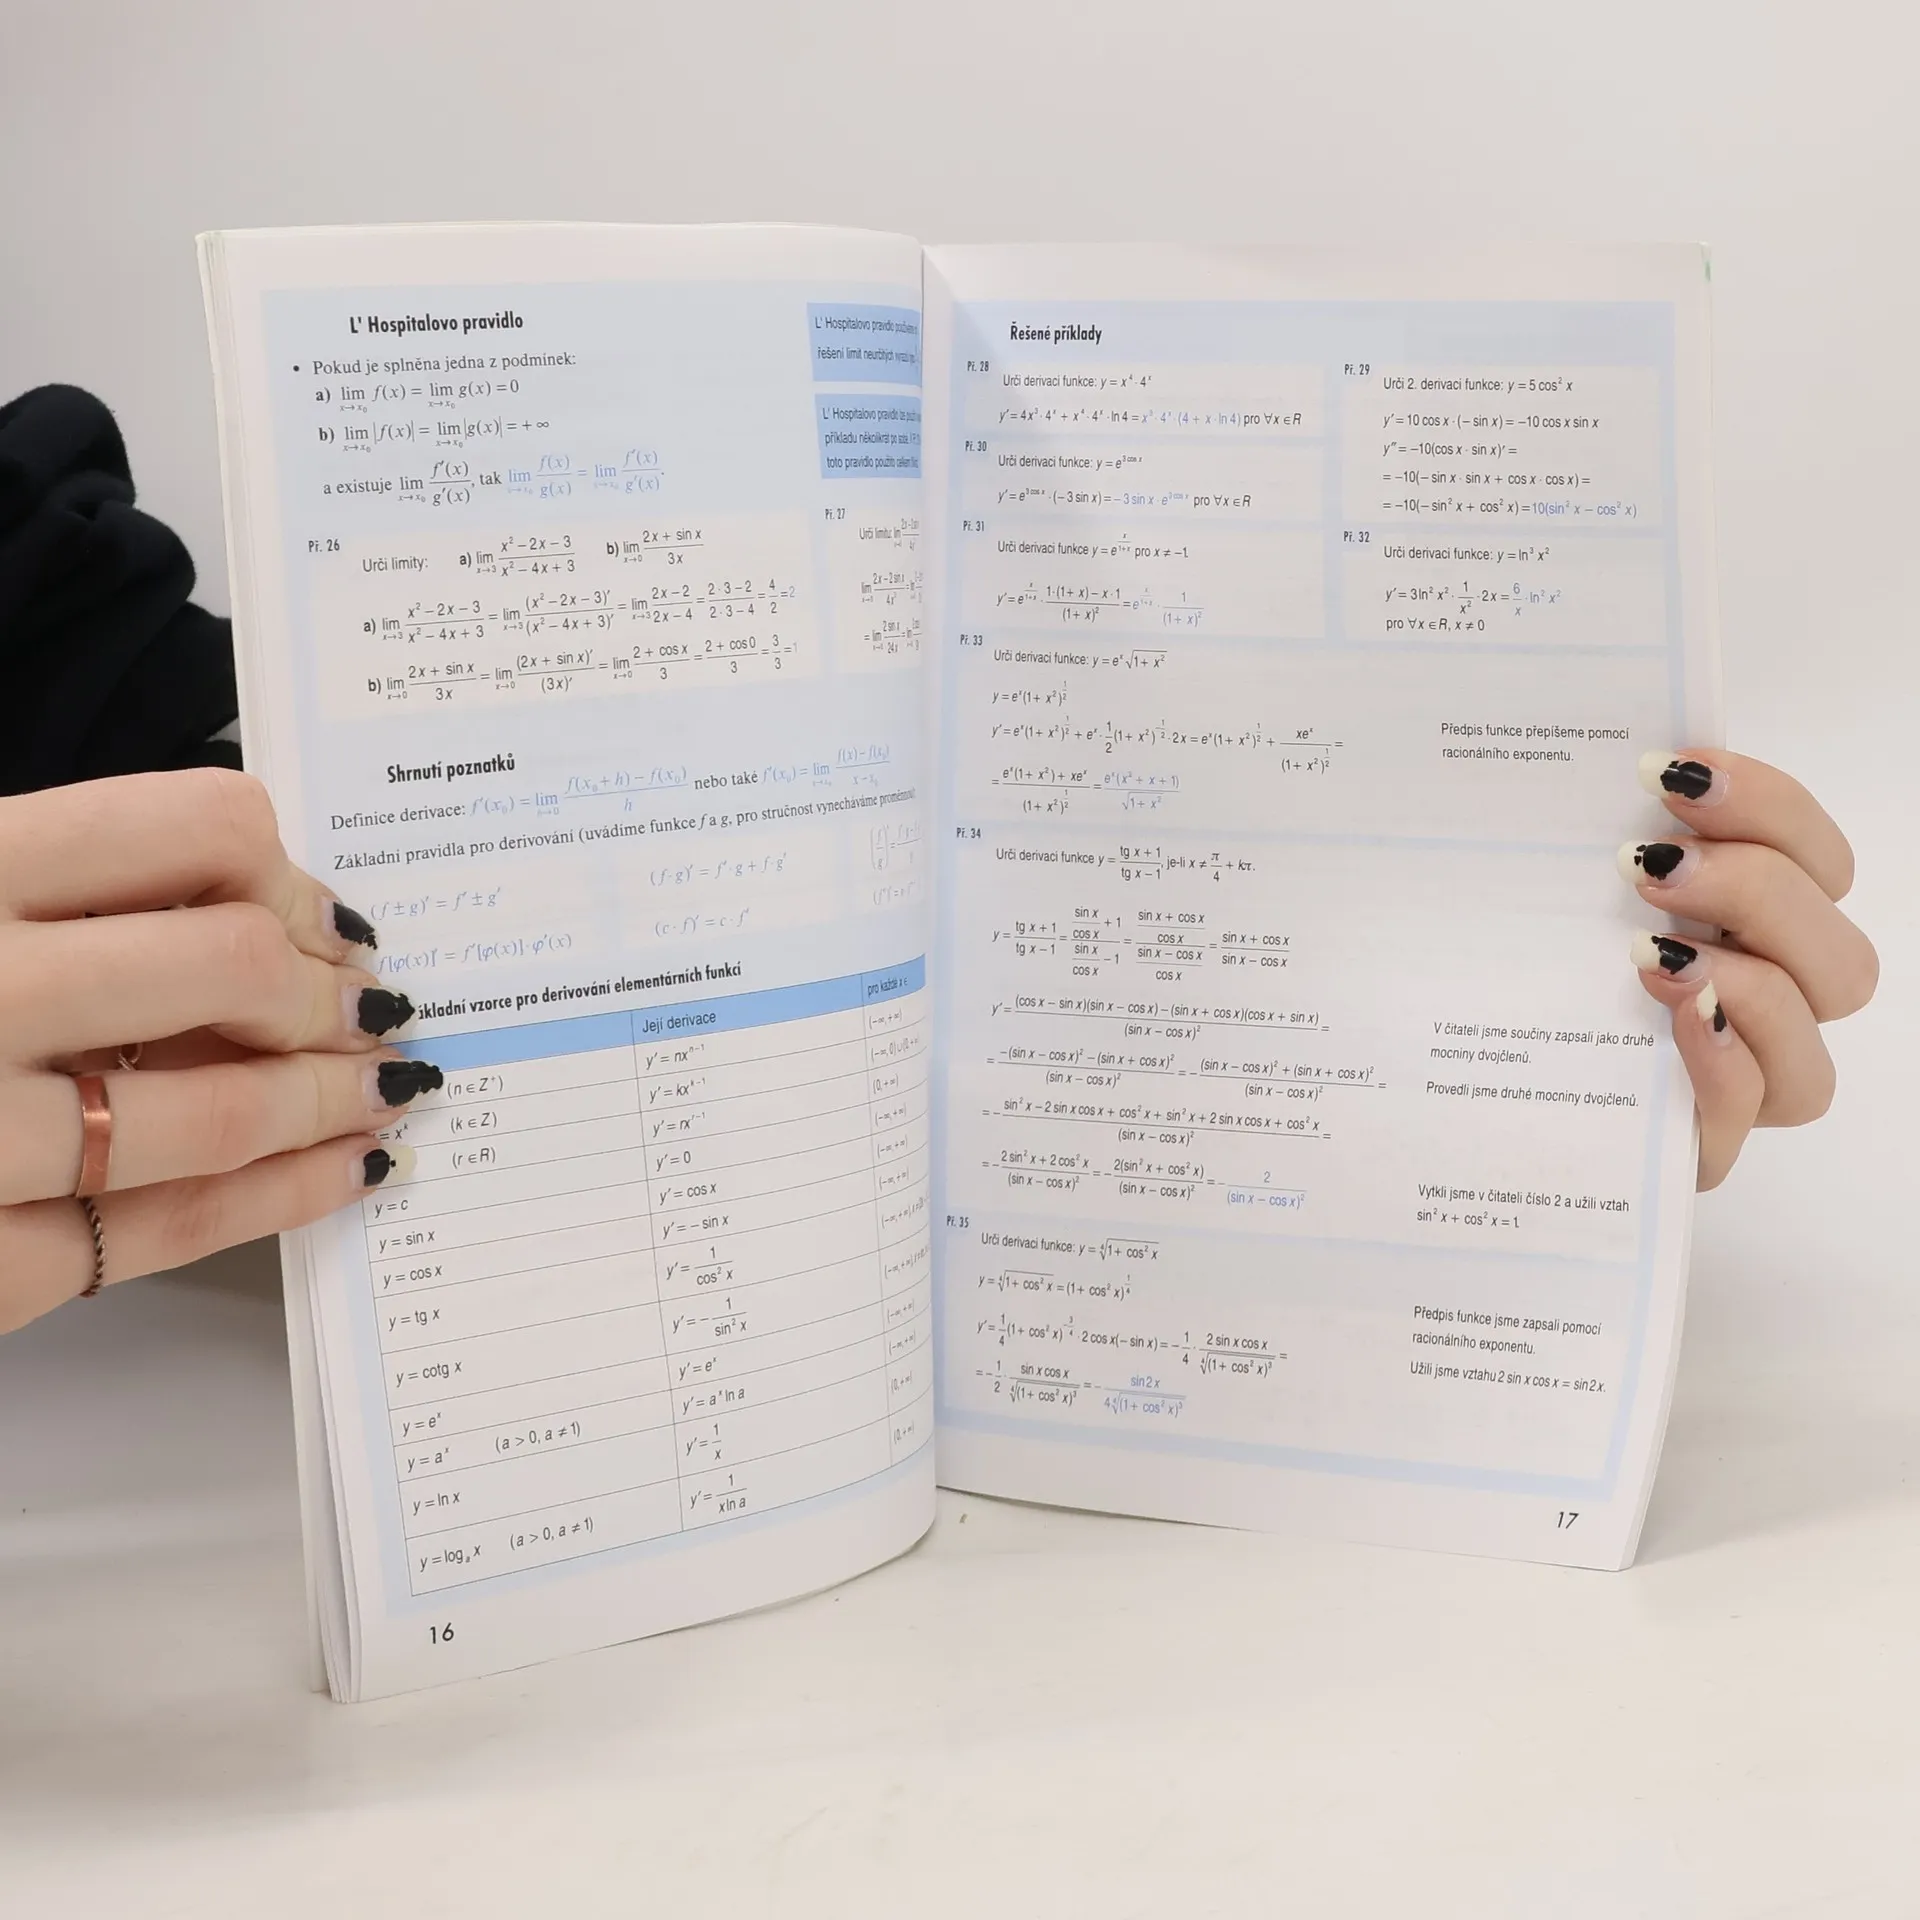 L' Hospitalovo pravidlo
• Pokud je splněna jedna z podmínek:
a) lim f(x) = lim g(x) = 0
x→x₀ x→x₀
b) lim |f(x)| = lim |g(x)| = + ∞
x→x₀ x→x₀
a existuje lim f'(x)/g'(x), tak lim f(x)/g(x) = lim f'(x)/g'(x).
x→x₀ x→x₀ x→x₀
L' Hospitalovo pravidlo
řešení limit neurčitých
L' Hospitalovo pravidlo lze
příkladu několikrát po sobě.
toto pravidlo použito
Př. 26
Urči limity: a) lim (x² − 2x − 3)/(x² − 4x + 3) b) lim (2x + sin x)/3x
x→3 x→0
a) lim (x² − 2x − 3)/(x² − 4x + 3) = lim (x² − 2x − 3)'/(x² − 4x + 3)' = lim (2x − 2)/(2x − 4) = (2·3 − 2)/(2·3 − 4) = 4/2 = 2
x→3 x→3 x→3
b) lim (2x + sin x)/3x = lim (2x + sin x)'/(3x)' = lim (2 + cos x)/3 = (2 + cos 0)/3 = 3/3 = 1
x→0 x→0 x→0
Př. 27
Urči limitu: lim
Shrnutí poznatků
Definice derivace: f'(x₀) = lim (f(x₀ + h) − f(x₀))/h nebo také f'(x₀) = lim (f(x) − f(x₀))/(x − x₀)
h→0 x→x₀
Základní pravidla pro derivování (uvádíme funkce f a g, pro stručnost vynecháváme proměnnou
(f ± g)' = f' ± g' (f·g)' = f'·g + f·g'
f[φ(x)]' = f'[φ(x)]·φ'(x) (c·f)' = c·f'
ákladní vzorce pro derivování elementárních funkcí
Její derivace pro každé x ∈
(n ∈ Z⁺) y' = nxⁿ⁻¹ (−∞, +∞)
= xᵏ (k ∈ Z) y' = kxᵏ⁻¹ (−∞, 0)∪(0, +∞)
(r ∈ R) y' = rxʳ⁻¹ (0, +∞)
y = c y' = 0 (−∞, +∞)
y = sin x y' = cos x (−∞, +∞)
y = cos x y' = − sin x (−∞, +∞)
y = tg x y' = 1/cos² x
y = cotg x y' = − 1/sin² x
y = eˣ y' = eˣ (−∞, +∞)
y = aˣ (a > 0, a ≠ 1) y' = aˣ ln a (−∞, +∞)
y = ln x y' = 1/x (0, +∞)
y = logₐ x (a > 0, a ≠ 1) y' = 1/(x ln a) (0, +∞)
16
Řešené příklady
Př. 28
Urči derivaci funkce: y = x⁴ · 4ˣ
y' = 4x³ · 4ˣ + x⁴ · 4ˣ · ln 4 = x³ · 4ˣ · (4 + x · ln 4) pro ∀x ∈ R
Př. 29
Urči 2. derivaci funkce: y = 5 cos² x
y' = 10 cos x · (− sin x) = −10 cos x sin x
y'' = −10(cos x · sin x)' =
= −10(− sin x · sin x + cos x · cos x) =
= −10(− sin² x + cos² x) = 10(sin² x − cos² x)
Př. 30
Urči derivaci funkce: y = e^(3 cos x)
y' = e^(3 cos x) · (− 3 sin x) = − 3 sin x · e^(3 cos x) pro ∀x ∈ R
Př. 31
Urči derivaci funkce y = e^(x/(1+x)) pro x ≠ −1.
y' = e^(x/(1+x)) · (1·(1 + x) − x·1)/(1 + x)² = e^(x/(1+x)) · 1/(1 + x)²
Př. 32
Urči derivaci funkce: y = ln³ x²
y' = 3 ln² x² · 1/x² · 2x = 6/x · ln² x²
pro ∀x ∈ R, x ≠ 0
Př. 33
Urči derivaci funkce: y = eˣ √(1 + x²)
y = eˣ(1 + x²)^(1/2)
y' = eˣ(1 + x²)^(1/2) + eˣ · 1/2 (1 + x²)^(−1/2) · 2x = eˣ(1 + x²)^(1/2) + xeˣ/(1 + x²)^(1/2) =
= (eˣ(1 + x²) + xeˣ)/(1 + x²)^(1/2) = eˣ(x² + x + 1)/√(1 + x²)
Předpis funkce přepíšeme pomocí
racionálního exponentu.
Př. 34
Urči derivaci funkce y = (tg x + 1)/(tg x − 1), je-li x ≠ π/4 + kπ.
y = (tg x + 1)/(tg x − 1) = (sin x/cos x + 1)/(sin x/cos x − 1) = ((sin x + cos x)/cos x)/((sin x − cos x)/cos x) = (sin x + cos x)/(sin x − cos x)
y' = ((cos x − sin x)(sin x − cos x) − (sin x + cos x)(cos x + sin x))/(sin x − cos x)² =
= (−(sin x − cos x)² − (sin x + cos x)²)/(sin x − cos x)² = − ((sin x − cos x)² + (sin x + cos x)²)/(sin x − cos x)² =
= − (sin² x − 2 sin x cos x + cos² x + sin² x + 2 sin x cos x + cos² x)/(sin x − cos x)² =
= − (2 sin² x + 2 cos² x)/(sin x − cos x)² = − 2(sin² x + cos² x)/(sin x − cos x)² = − 2/(sin x − cos x)²
V čitateli jsme součiny zapsali jako druhé
mocniny dvojčlenů.
Provedli jsme druhé mocniny dvojčlenů.
Vytkli jsme v čitateli číslo 2 a užili vztah
sin² x + cos² x = 1.
Př. 35
Urči derivaci funkce: y = ⁴√(1 + cos² x)
y = ⁴√(1 + cos² x) = (1 + cos² x)^(1/4)
y' = 1/4 (1 + cos² x)^(−3/4) · 2 cos x(− sin x) = − 1/4 · 2 sin x cos x/⁴√((1 + cos² x)³) =
= − 1/2 · sin x cos x/⁴√((1 + cos² x)³) = − sin 2x/(4 ⁴√((1 + cos² x)³))
Předpis funkce jsme zapsali pomocí
racionálního exponentu.
Užili jsme vztahu 2 sin x cos x = sin 2x.
17